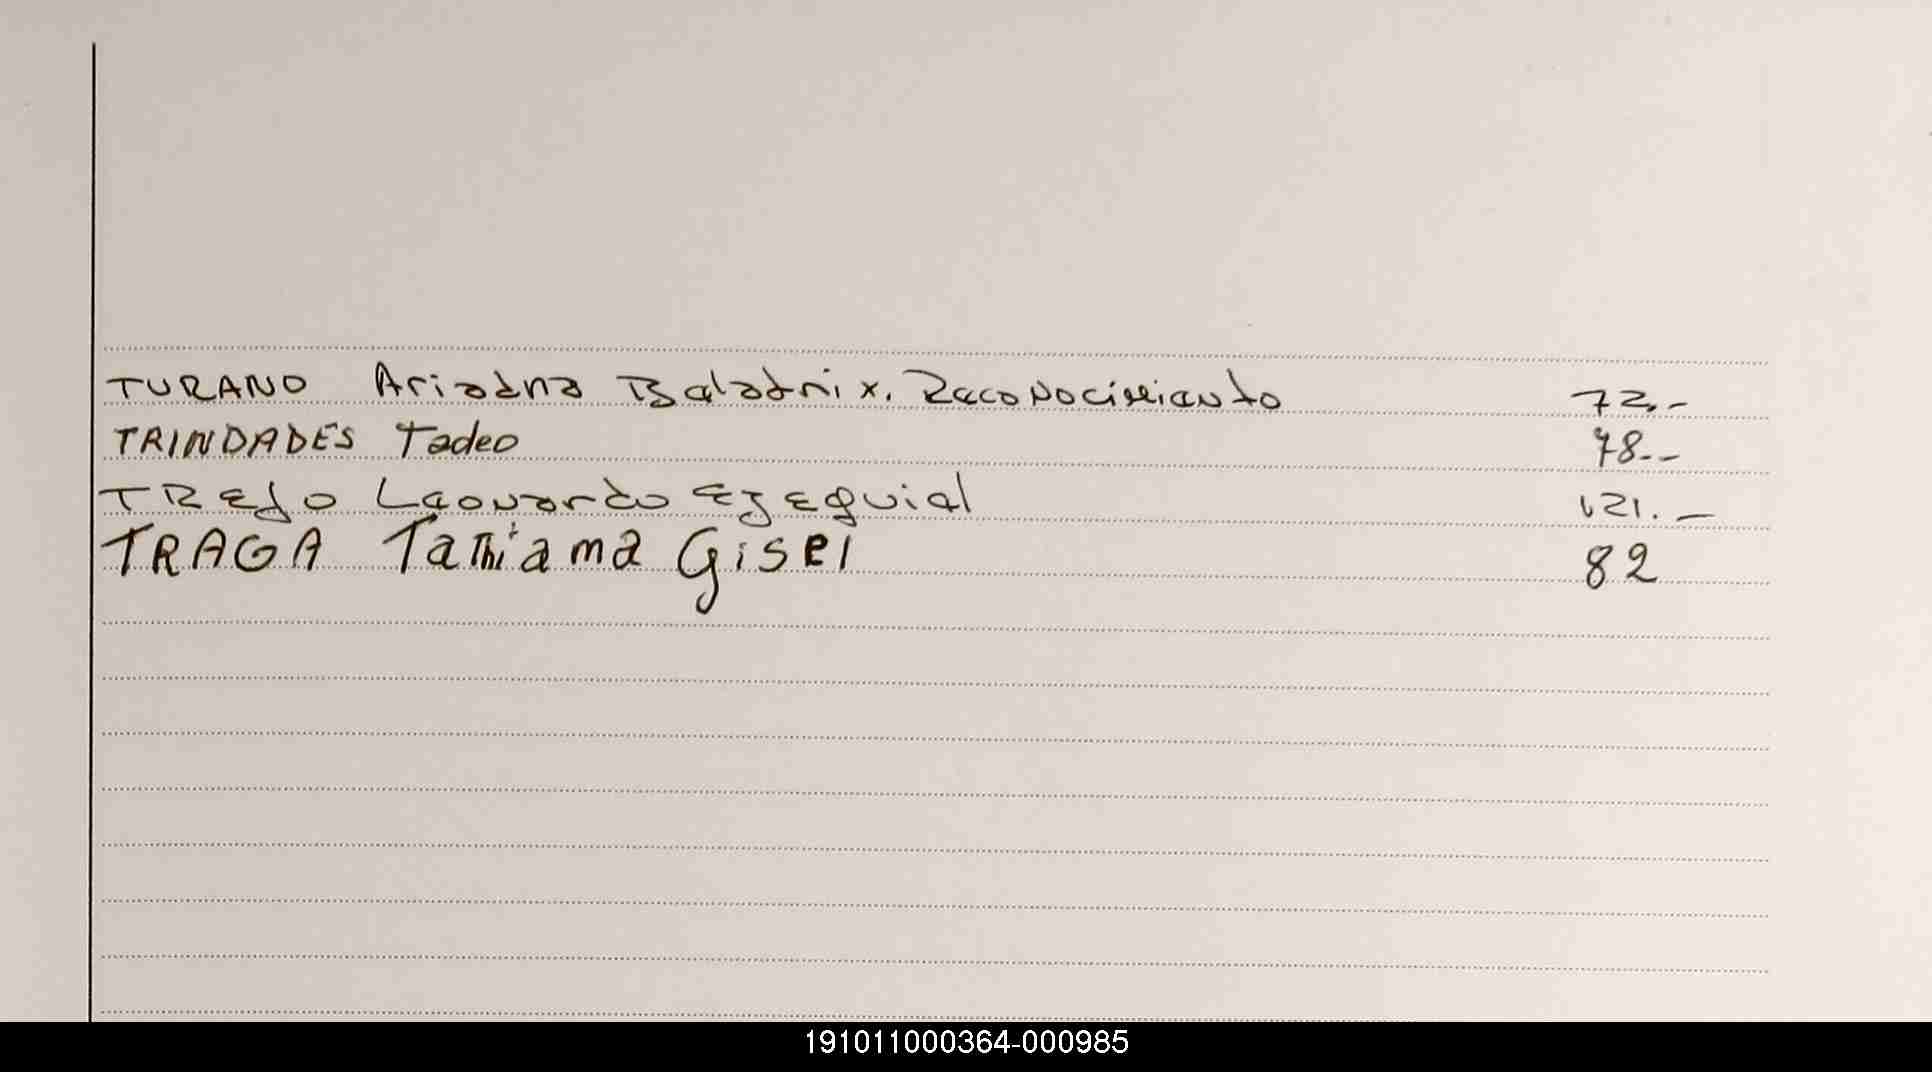 TURANO Ariadna Belatrix. Reconocimiento 72.-
TRINDADES Tadeo 78.--
TREJO Leonardo Ezequiel 121.-
TRAGA Tathiama Gisel 82
191011000364-000985